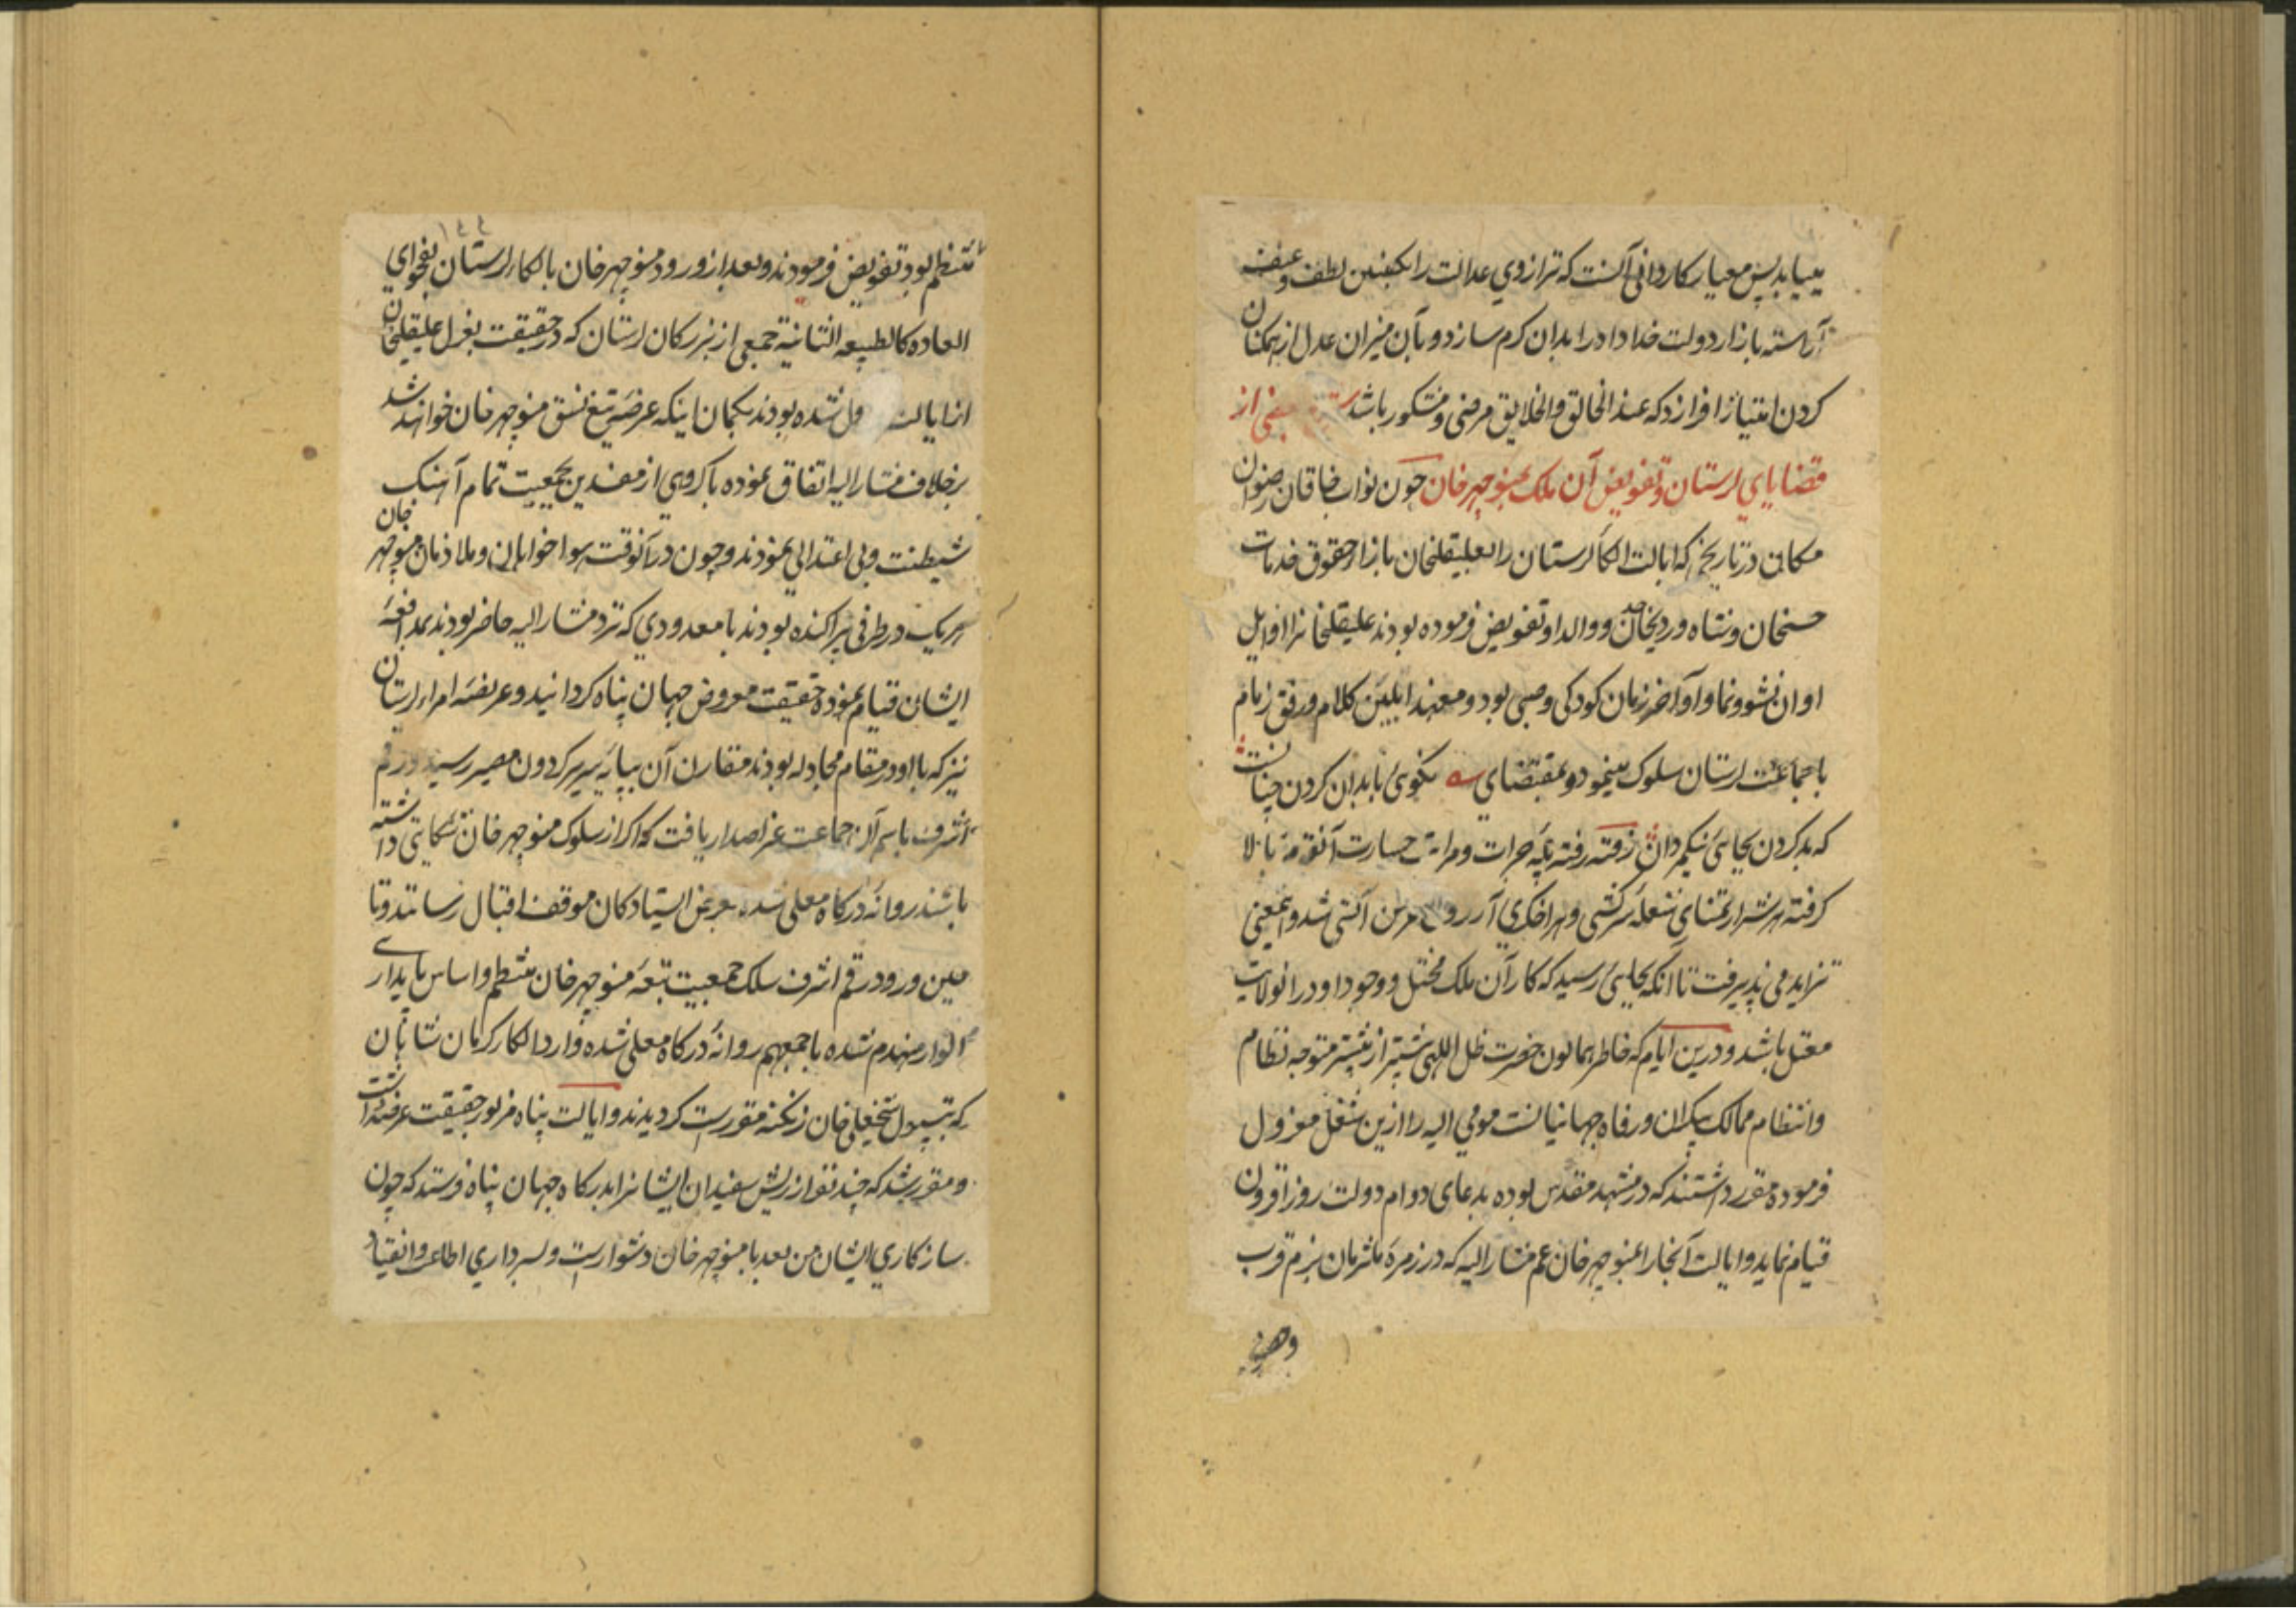 می‌باید پس معیار کاردانی آنست که ترازوی عدالت را بکفتین لطف و عنف
آراسته بازار دولت خداداد را بدان کرم سازد و بآن میزان عدل از همکنان
کردن امتیاز افرازد که عند الخالق والخلایق مرضی و مشکور باشد بعضی از
قضایای لرستان و تفویض آن ملک بمنوچهر خان چون نواب خاقان رضوان
مکانی در تاریخی که ایالت الکاء لرستان را بعلیقلیخان بازاء حقوق خدمات
حسنخان و شاه ویردیخان جد و والد او تفویض فرموده بودند علیقلیخانرا اوایل
اوان نشو و نما و اواخر زمان کودکی و صبی بود و معهذا بلین کلام و رفق زمام
با جماعت لرستان سلوک مینمود و بمقتضای نکوی با بدان کردن چنانست
که بد کردن بجای نیکمردان رفته رفته پایه جرات و مراتب جسارت آنقوم بالا
کرفته هر شرار تمنای شعله سرکشی و هر اخکری آرزوی خرمن آتشی شد و اینمعنی
تزاید می پذیرفت تا آنکه بجایی رسید که کار آن ملک مختل و وجود او در انولایت
معتل باشد و درین ایام که خاطر همایون حضرت ظل اللهی بیشتر از پیشتر متوجه نظام
و انتظام ممالک بیکران و رفاه جهانیانست مومی الیه را ازین شغل معزول
فرموده مقرر داشتند که در مشهد مقدس بوده بدعای دوام دولت روز افزون
قیام نماید و ایالت آنجا را بمنوچهر خان عم مشار الیه که در زمره ملتزمان بزم قرب
۱۴۴
منتظم بود تفویض فرمودند و بعد از ورود منوچهر خان بالکاء لرستان بفحوای
العاده کالطبیعه الثانیة جمعی از بزرکان لرستان که در حقیقت بعزل علیقلیخان
از ایالت شده بودند بکمان اینکه عرضه تیغ نسق منوچهر خان خواهند شد
برخلاف مشار الیه اتفاق نموده با کروهی از مفسدین بجمعیت تمام آهنک
شیطنت و بی اعتدالی نمودند و چون در آنوقت هواخواهان و ملازمان منوچهر خان
هر یک در طرفی پراکنده بودند با معدودی که نزد مشار الیه حاضر بودند بمدافعه
ایشان قیام نموده حقیقت معروض جهان پناه کردانید و عریضه امراء لرستان
نیز که با او در مقام مجادله بودند مقارن آن بپایه سریر کردون مصیر رسید و رقم
اشرف باسم آن جماعت عز اصدار یافت که اکر از سلوک منوچهر خان شکایتی داشته
باشند روانه درکاه معلی شده بعرض ایستادکان موقف اقبال رسانند و تا
حین ورود رقم اشرف سلک جمعیت تبعه منوچهر خان منتظم و اساس پایداری
الوار منهدم شده باجمعهم روانه درکاه معلی شده وارد الکاء کرمان شاهان
که بتیول شیخعلی خان زنکنه مقررست کردیدند و ایالت پناه مزبور حقیقت عرضه داشت
و مقرر شد که چند نفر از ریش سفیدان ایشانرا بدرکاه جهان پناه فرستد که چون
سازکاری ایشان من بعد با منوچهر خان دشوارست و لسرداری اطاعت و انقیاد